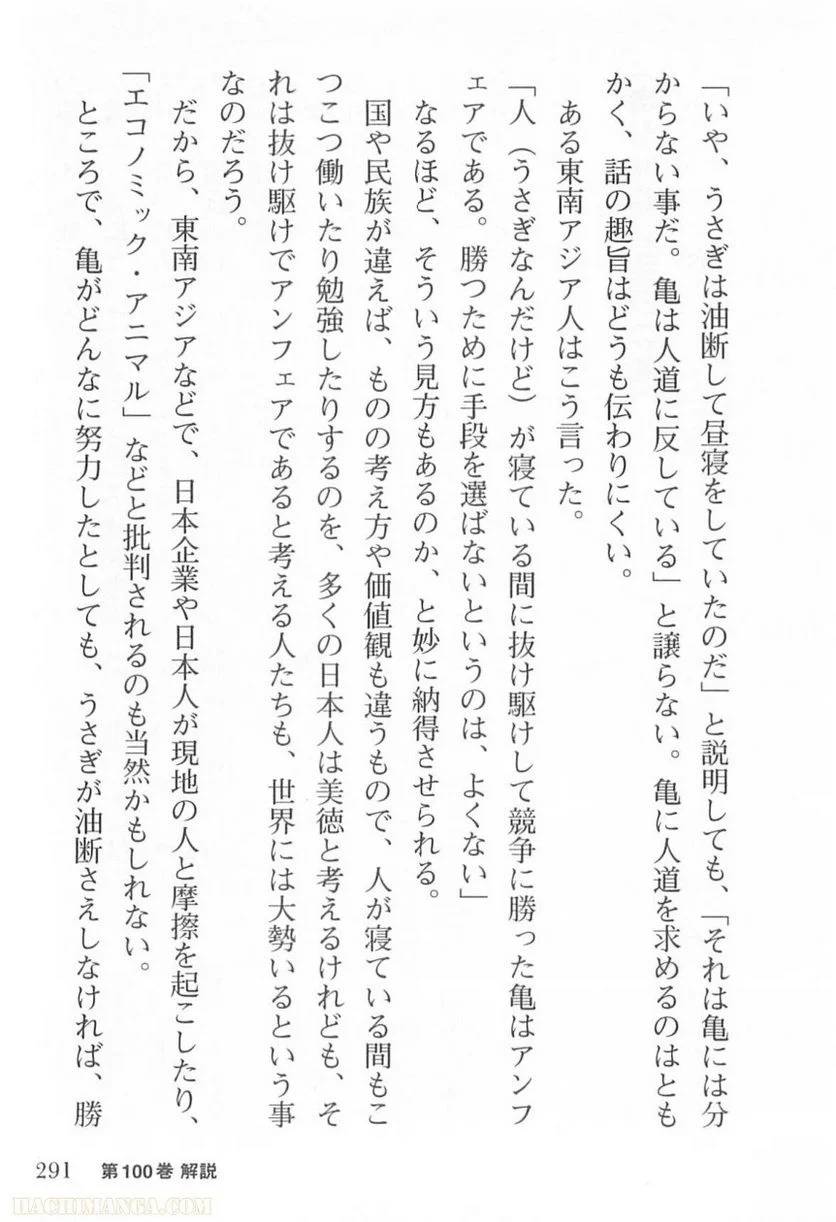 「いや、うさぎは油断して昼寝をしていたのだ」と説明しても、「それは亀には分
からない事だ。亀は人道に反している」と譲らない。亀に人道を求めるのはとも
かく、話の趣旨はどうも伝わりにくい。
ある東南アジア人はこう言った。
「人（うさぎなんだけど）が寝ている間に抜け駆けして競争に勝った亀はアンフ
ェアである。勝つために手段を選ばないというのは、よくない」
なるほど、そういう見方もあるのか、と妙に納得させられる。
国や民族が違えば、ものの考え方や価値観も違うもので、人が寝ている間もこ
つこつ働いたり勉強したりするのを、多くの日本人は美徳と考えるけれども、そ
れは抜け駆けでアンフェアであると考える人たちも、世界には大勢いるという事
なのだろう。
だから、東南アジアなどで、日本企業や日本人が現地の人と摩擦を起こしたり、
「エコノミック・アニマル」などと批判されるのも当然かもしれない。
ところで、亀がどんなに努力したとしても、うさぎが油断さえしなければ、勝
291 第100巻 解説
HACHIMANGA.COM